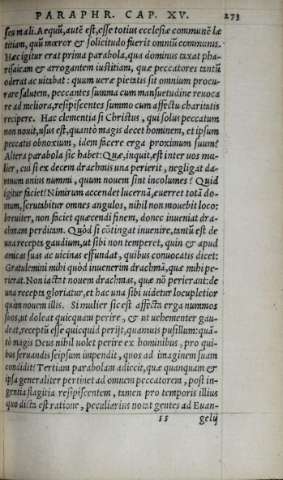 PARAPHR. CAP. XV. 273
seu mali. Aequũ, autẽ est, esse totius ecclesiæ communẽ læ
titiam, quũ mœror & solicitudo fuerit omniũ communis.
Hæc igitur erat prima parabola, qua dominus taxat pha-
risaicam & arrogantem iustitiam, quæ peccatores tantũ
oderat ac uitabat: quum ueræ pietatis sit omnium procu-
rare salutem, peccantes summa cum mansuetudine reuoca
re ad meliora, resipiscentes summo cum affectu charitatis
recipere. Hac clementia si Christus, qui solus peccatum
non nouit, usus est, quantò magis decet hominem, et ipsum
peccatis obnoxium, idem facere erga proximum suum?
Altera parabola sic habet: Quæ, inquit, est inter uos mu-
lier, cui si ex decem drachmis una perierit, negligat da-
mnum unius nummi, quum nouem sint incolumes? Quid
igitur faciet? Nimirum accendet lucernã, euerret totã do-
mum, scrutabitur omnes angulos, nihil non mouebit loco:
breuiter, non faciet quærendi finem, donec inueniat dra-
chmam perditam. Quòd si cõtingat inuenire, tantũ est de
una recepta gaudium, ut sibi non temperet, quin & apud
amicas suas ac uicinas effundat, quibus conuocatis dicet:
Gratulemini mihi quòd inuenerim drachmã, quæ mihi pe-
rierat. Non iactat nouem drachmas, quæ nõ perierant: de
una recepta gloriatur, et hac una sibi uidetur locupletior
quàm nouem illis. Si mulier sic est affecta erga nummos
suos, ut doleat quicquam perire, & ut uehementer gau-
deat, receptũ esse quicquid perijt, quamuis pusillum: quã-
tò magis Deus nihil uolet perire ex hominibus, pro qui-
bus seruandis seipsum impendit, quos ad imaginem suam
condidit? Tertiam parabolam adiecit, quæ quanquam &
ipsa generaliter pertinet ad omnem peccatorem, post in-
gentia flagitia resipiscentem, tamen pro temporis illius
quo dicta est ratione, peculiarius notat gentes ad Euan-
gelij